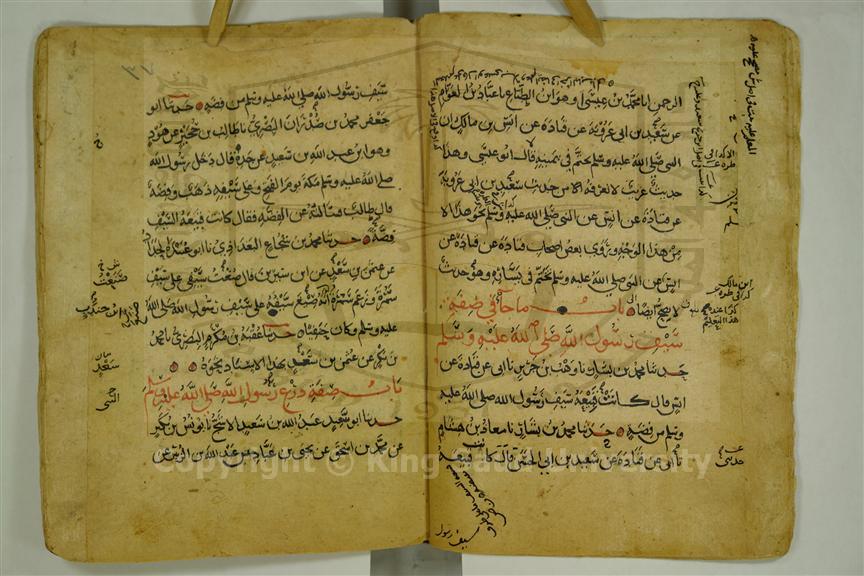 الرحمن انا محمد بن عيسى وهو ابن الطباع نا عباد بن العوام
عن سعيد بن ابي عروبة عن قتادة عن انس بن مالك ان
النبي صلى الله عليه وسلم تختم في يمينه قال ابو عيسى وهذا
حديث غريب لا نعرفه الا من حديث سعيد بن ابي عروبة
عن قتادة عن انس عن النبي صلى الله عليه وسلم نحو هذا الا
من هذا الوجه وروى بعض اصحاب قتادة عن قتادة عن
انس عن النبي صلى الله عليه وسلم تختم في يساره وهو حديث
لا يصح ايضا باب ما جاء في صفة
سيف رسول الله صلى الله عليه وسلم
حدثنا محمد بن بشار نا وهب بن جرير نا ابي عن قتادة عن
انس قال كانت قبيعة سيف رسول الله صلى الله عليه
وسلم من فضة حدثنا محمد بن بشار نا معاذ بن هشام
نا ابي عن قتادة عن سعيد بن ابي الحسن قال كانت قبيعة
سيف رسول
سيف رسول الله صلى الله عليه وسلم من فضة حدثنا ابو
جعفر محمد بن صدران البصري نا طالب بن حجير عن هود
وهو ابن عبد الله بن سعيد عن جده قال دخل رسول الله
صلى الله عليه وسلم مكة يوم الفتح وعلى سيفه ذهب وفضة
قال طالب فسالته عن الفضة فقال كانت قبيعة السيف
فضة حدثنا محمد بن شجاع البغدادي نا ابو عبيدة الحداد
عن عثمن بن سعد عن ابن سيرين قال صنعت سيفي على سيف
سمرة وزعم سمرة انه صنع سيفه على سيف رسول الله صلى الله
عليه وسلم وكان حنفيا حدثنا عقبة بن مكرم البصري نا محمد
بن بكر عن عثمن بن سعد بهذا الاسناد نحوه
باب صفة درع رسول الله صلى الله عليه وسلم
حدثنا ابو سعيد عبد الله بن سعيد الاشج نا يونس بن بكير
عن محمد بن اسحق عن يحيى بن عباد بن عبد الله بن الزبير عن
Copyright © King Saud University